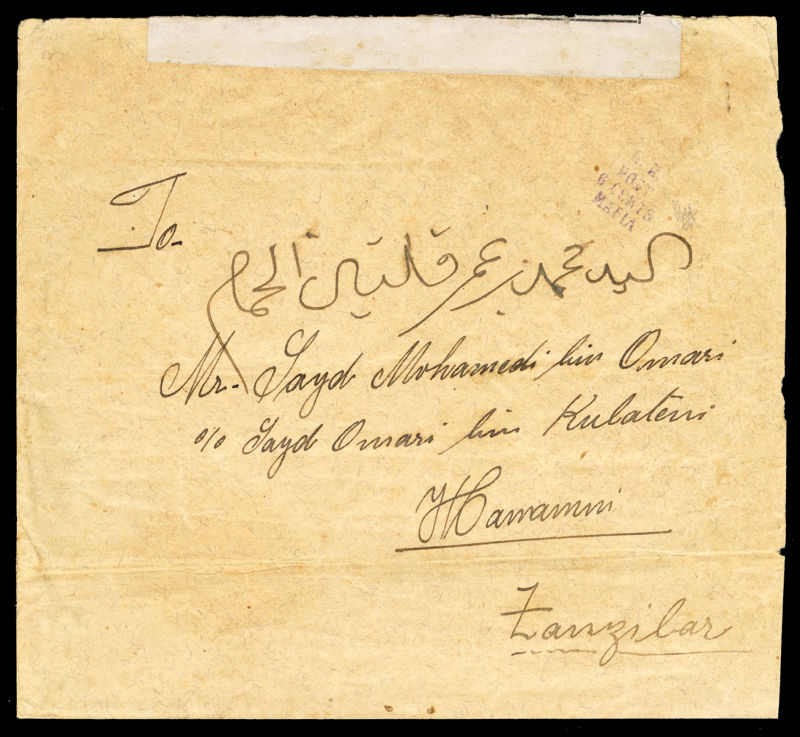 G. R
POST
6 CENTS
MAFIA
To-
السيد محمد بن عمر قلتين الحمام
Mr. Sayd Mohamedi bin Omari
c/o Sayd Omari bin Kulateni
Hamamni
Zanzibar